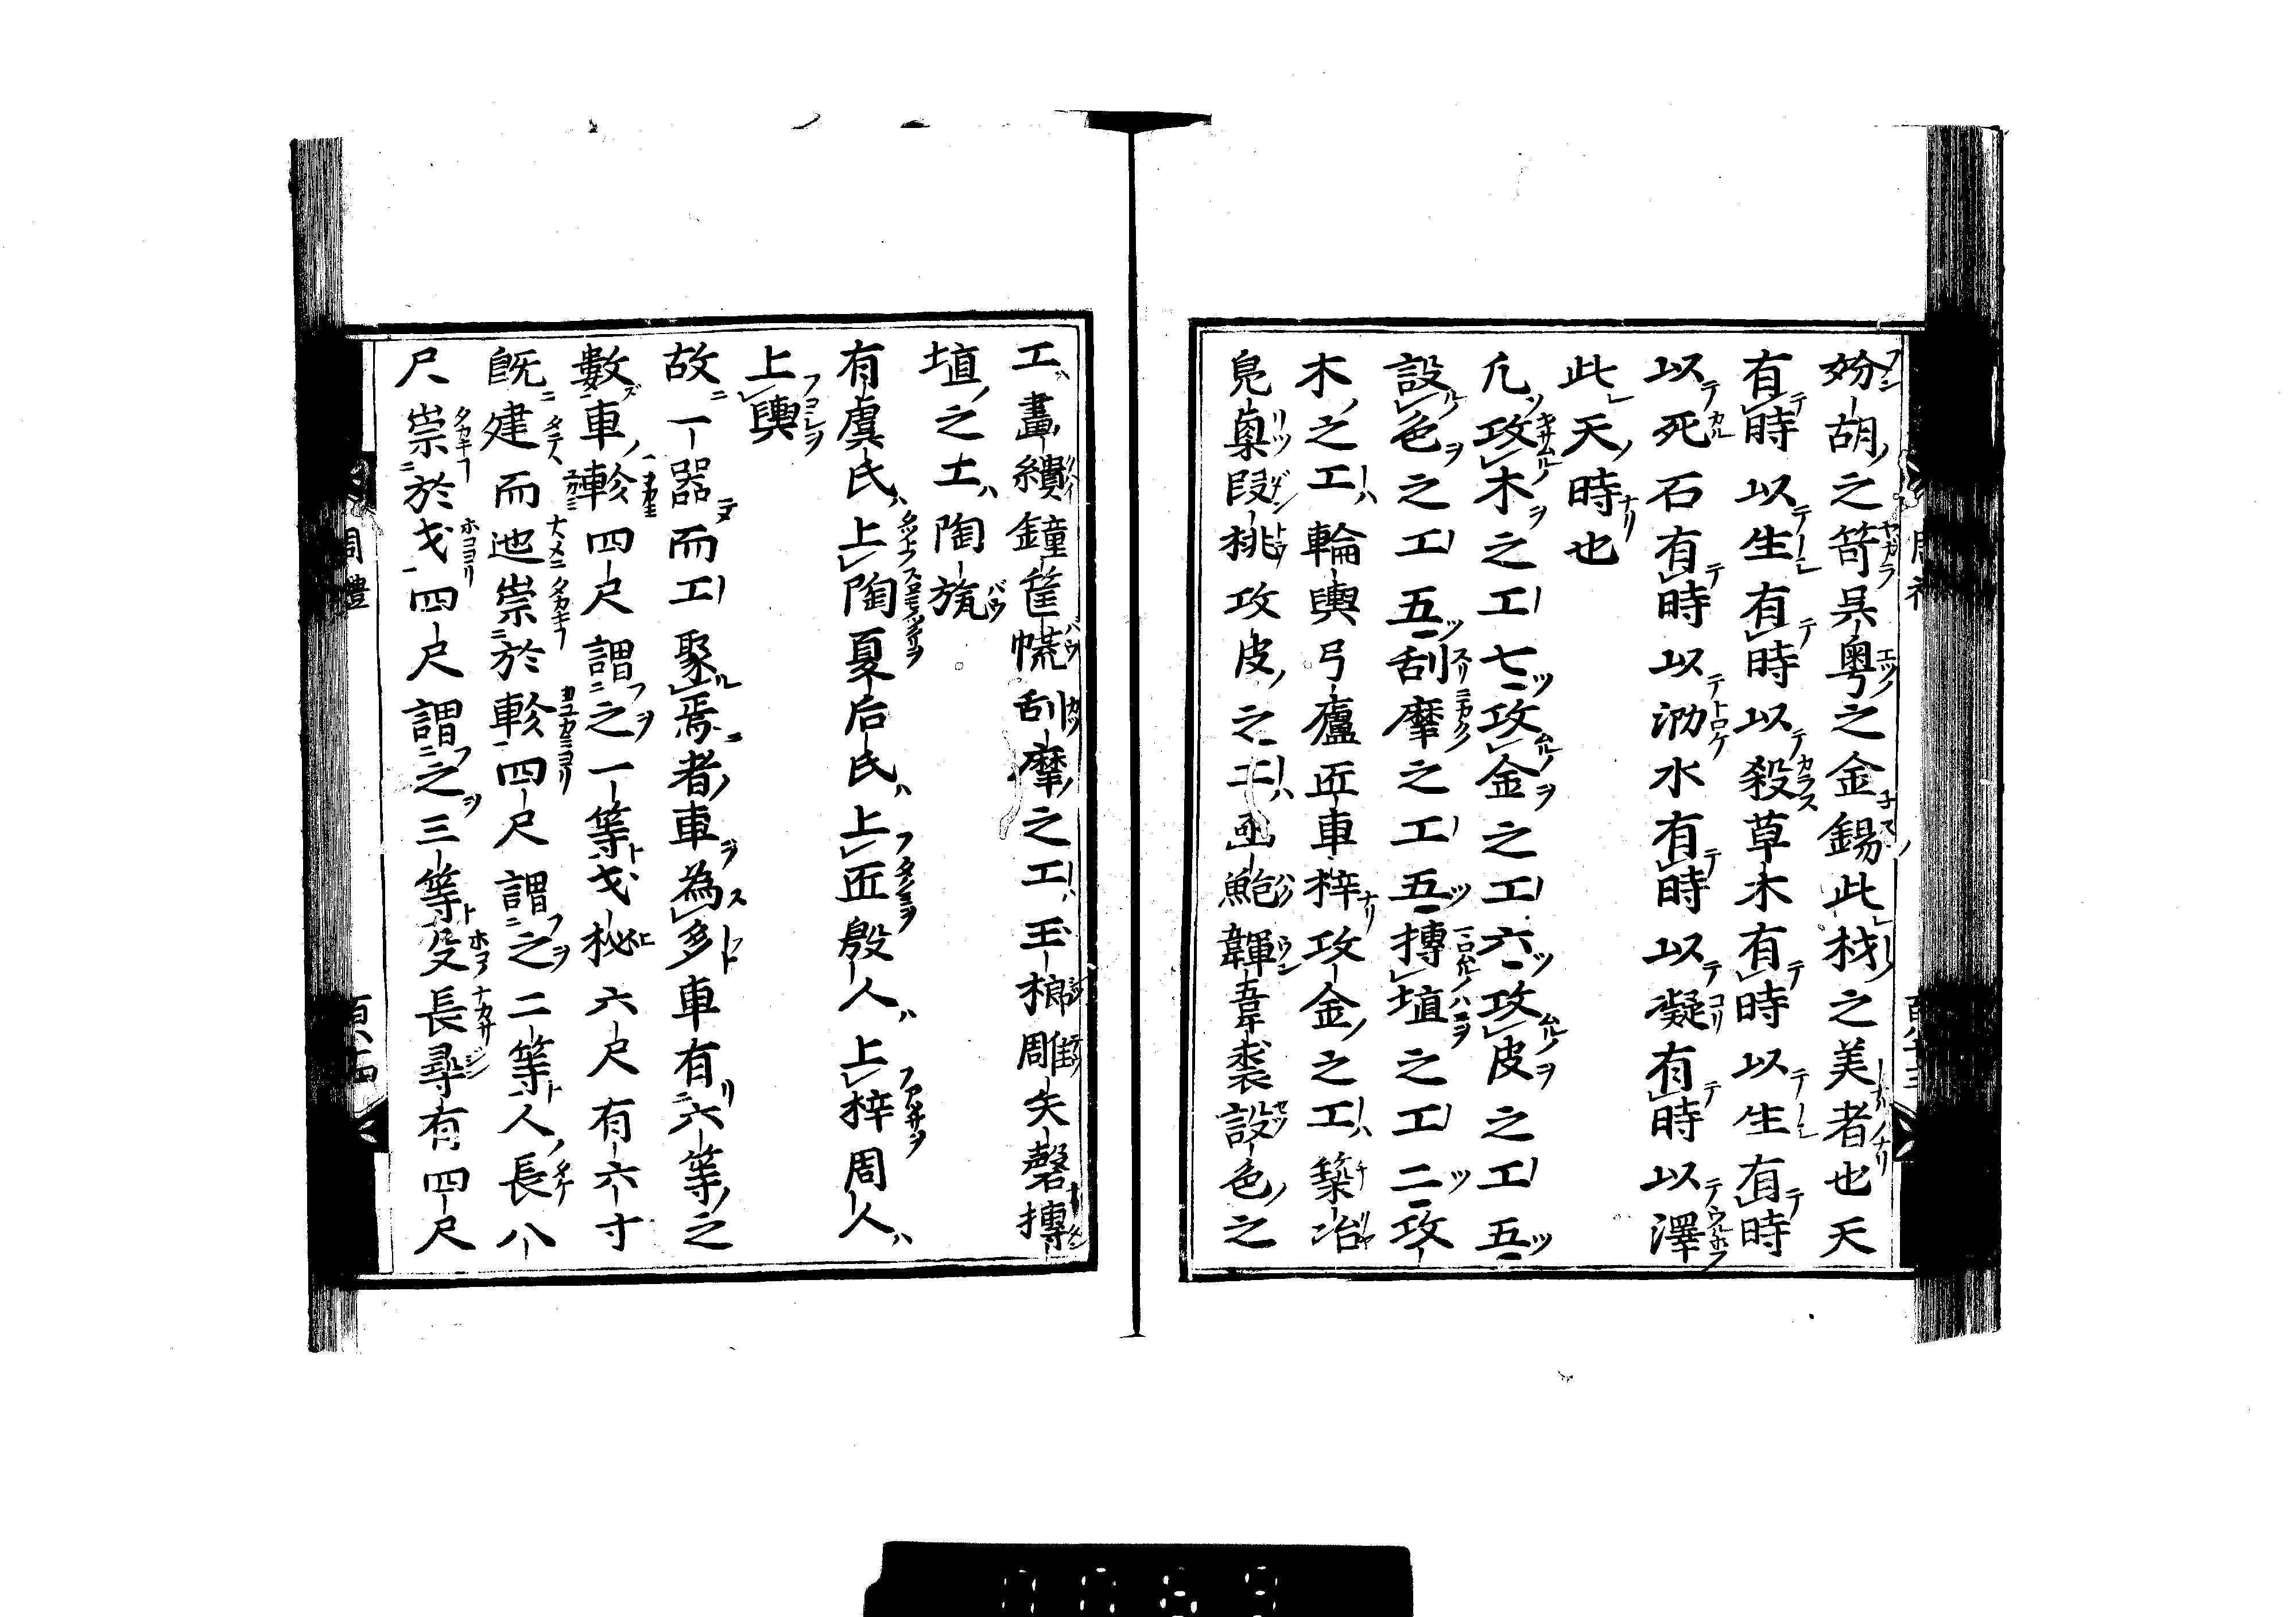 妢胡之笴吳粤之金錫此材之美者也天
有時以生有時以殺草木有時以生有時
以死石有時以泐水有時以凝有時以澤
此天時也
凢攻木之工七攻金之工六攻皮之工五
設色之工五刮摩之工五摶埴之工二攻
木之工輪輿弓廬匠車梓攻金之工築冶
鳧㮚段桃攻皮之工函鮑韗韋裘設色之
工畫繢鐘筐㡛刮摩之工玉楖雕矢磬摶
埴之工陶瓬
有虞氏上陶夏后氏上匠殷人上梓周人
上輿
故一器而工聚焉者車為多車有六等之
數車軫四尺謂之一等戈柲六尺有六寸
旣建而迆崇於軫四尺謂之二等人長八
尺崇於戈四尺謂之三等殳長尋有四尺
周禮